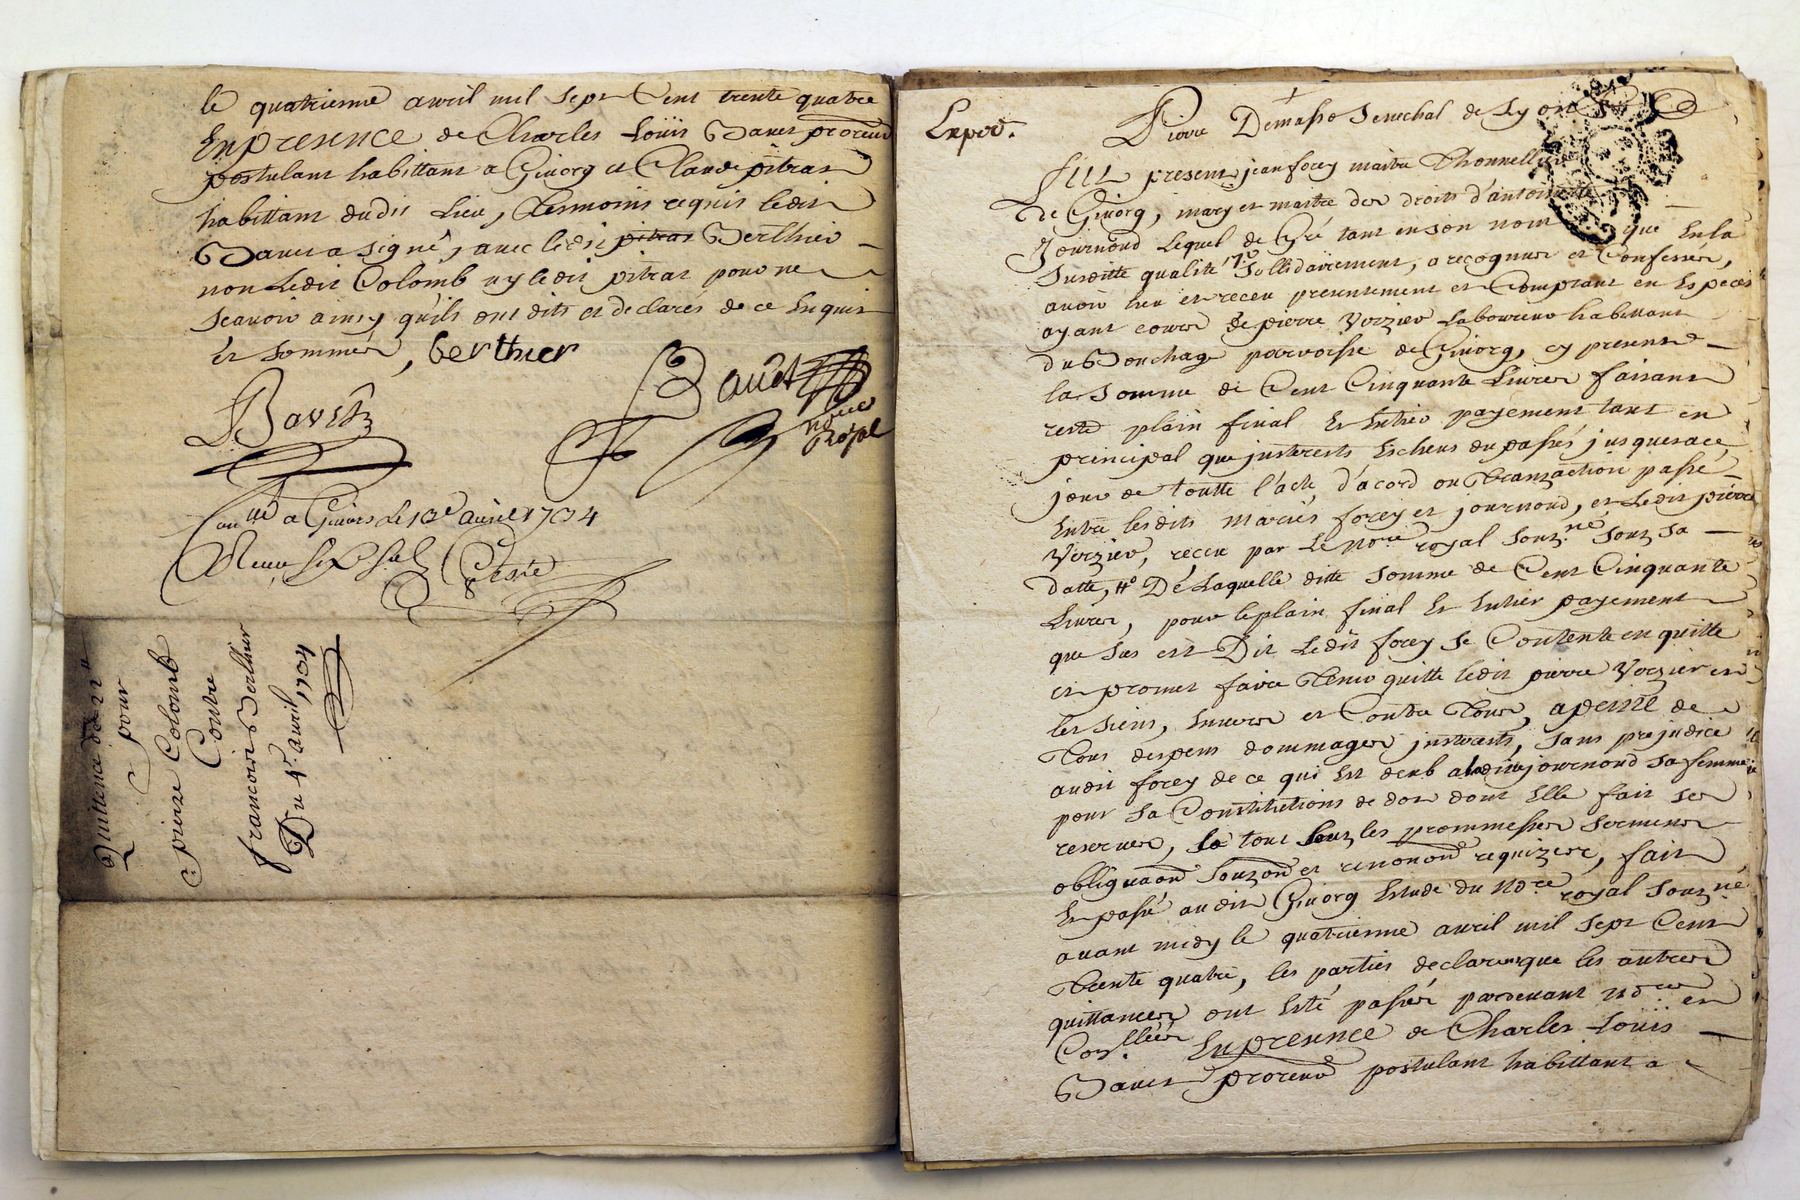 le quatrieme avril mil sept Cent trente quatre
En presence de Charles Loüis Bavet procureur
postulant habittant a Givorg et Claude pitrat
habittant dudit Lieu, Tesmoins requis ledit
Bavet a signé, avec ledit pitrat Berthier
non Ledit Colomb ny ledit pitrat pour ne
scavoir ainsy qu'ils ont dits et declarés de ce Enquis
Et sommés, berthier
Bavet
Bavet
no.re
Royal
a Givors Le 13e avril 1734
Quittence de 22ll
pour
pierre Colomb
Contre
francois Berthier
Du 4e. avril 1734
Exped.
Pierre Demasso Senechal de Lyon
fut present jean forey maitre
de Givorg, mary et maitre des droits d'antoinette
Journoud Lequel de Gré tant en son nom que En la
Susditte qualité Sollidairement, a recognus et Confessés,
avoir heu et receu presentement et Comptant en Especes
ayant cours de pierre Verzier Laboureur habittant
du Bouchage parroisse de Givorg, cy present
la Somme de Cent Cinquante Livres faisant
reste plain final Et Entier payement tant en
principal que jnterests Escheus du passé jusques a ce
jour de toutte l'acte d'acord ou Transaction passé
Entre lesdits mariés forey et journoud, et Ledit pierre
Verzier, receu par Le no.re royal souz.né souz sa
datte, De Laquelle ditte Somme de Cent Cinquante
Livres, pour le plain final Et Entier payement
que Sus est Dit Ledit forey se Contente en quitte
et promet faire Tenir quitte ledit pierre Verzier et
les siens, Envers et Contre Tous, a peine de
Tous despens dommages jnterests, sans prejudice
audit forey de ce qui Est deub a ladite journoud Sa femme
pour Sa Constitutions de dot dont Elle fait ses
reserves, le tout souz les prommesses serment
obliguaon Souzon et renonon requizes, fait
Et passé audit Givorg Estude du no.re royal souz.né
avant midy le quatrieme avril mil sept Cent
Trente quatre, les parties declarent que les autres
quittances ont Esté passés pardevant nd.re et
En presence de Charles Loüis
Bavet procureur postulant habittant a